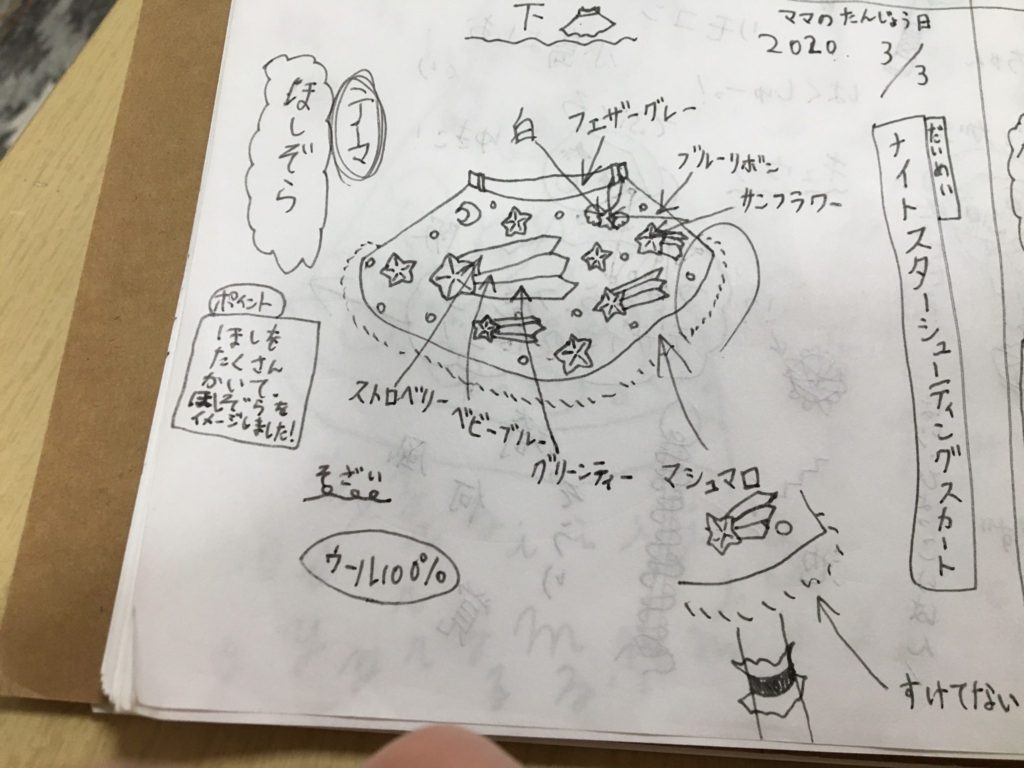 下
ママのたんじょう日
2020. 3/3
だいめい
ナイトスターシューティングスカート
テーマ
ほしぞら
白
フェザーグレー
ブルーリボン
サンフラワー
ポイント
ほしを
たくさん
かいて、
ほしぞらを
イメージしました!
ストロベリー
ベビーブルー
グリーンティー
マシュマロ
そざい
ウール100%
すけてない